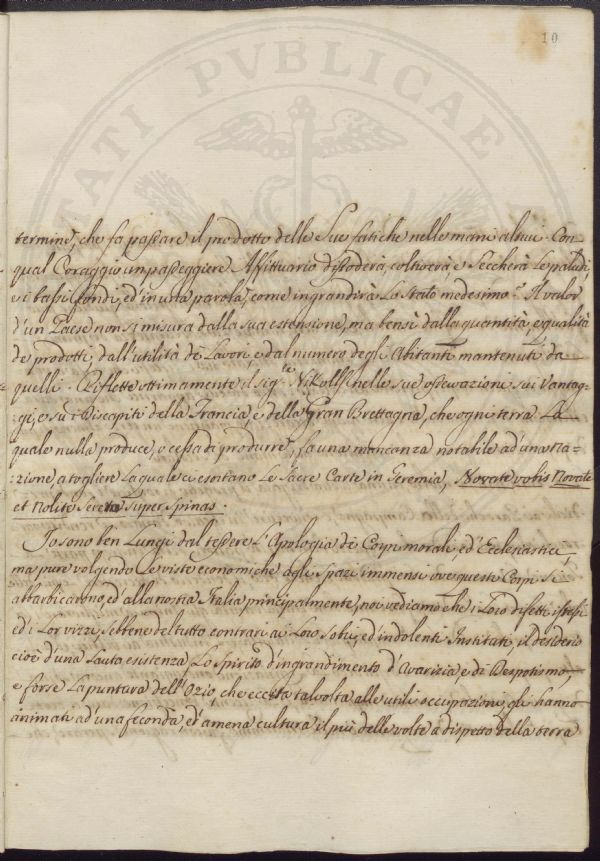 10
TATI PVBLICAE
termine, che fa passare il prodotto delle Sue fatiche nelle mani altrui. Con
qual Coraggio un passeggiere Affittuario dissoderà, coltiverà e Seccherà Le paludi,
e i bassi fondi, ed in una parola, come ingrandirà Lo Stato medesimo? Il valor
d'un Paese non si misura dalla sua estensione, ma bensì dalla quantità, e qualità
de prodotti, dall'utilità de Lavori, e dal numero degli Abitanti mantenuti da
quelli. Riflette ottimamente il sig.le Nikolls nelle sue osservazioni sui Vantag-
:gi, e sui Discapiti della Francia, e della Gran Brettagna, che ogni terra La
quale nulla produce, o cessa di produrre, fa una mancanza notabile ad una Na:
:zione, a togliere La quale ci esortano Le Sacre Carte in Geremia, Novate vobis Novale
et Nolite Serere Super Spinas.
Io sono ben Lungi dal tessere L'Apologia de Corpi morali, ed Ecclesiastici,
ma pure volgendo Le viste economiche agli Spazi immensi ove questi Corpi Si
abbarbicarono, ed alla nostra Italia principalmente, noi vediamo che i Loro difetti istessi
ed i Lor vizzi, sebbene del tutto contrari ai Loro Sobri, ed indolenti Instituti, il desiderio
cioè d'una Lauta esistenza, Lo Spirito d'ingrandimento d'Avarizia e di Despotismo,
e forse La puntura dell'Ozio, che eccita talvolta alle utili occupazioni, gli hanno
animati ad una feconda, ed amena cultura il più delle volte a dispetto della terra